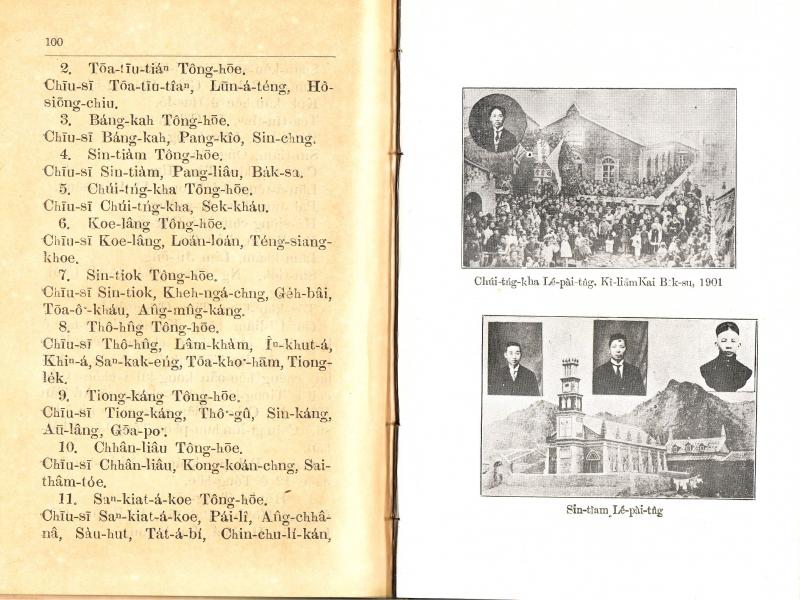 100
2. Tōa-tīu-tiáⁿ Tông-hōe.
Chīu-sī Tōa-tīu-tîaⁿ, Lūn-á-téng, Hô-
siōng-chiu.
3. Báng-kah Tông-hōe.
Chīu-sī Báng-kah, Pang-kîo, Sin-chng.
4. Sin-tiàm Tông-hōe.
Chīu-sī Sin-tiàm, Pang-liâu, Ba̍k-sa.
5. Chúi-tńg-kha Tông-hōe.
Chīu-sī Chúi-tńg-kha, Sek-kháu.
6. Koe-lâng Tông-hōe.
Chīu-sī Koe-lâng, Loán-loán, Téng-siang-
khoe.
7. Sin-tiok Tông-hōe.
Chīu-sī Sin-tiok, Kheh-ngá-chng, Ge̍h-bâi,
Tōa-ô͘-kháu, Âng-mn̂g-káng.
8. Thô-hn̂g Tông-hōe.
Chīu-sī Thô-hn̂g, Lâm-khàm, Íⁿ-khut-á,
Khiⁿ-á, Saⁿ-kak-eńg, Tōa-kho͘-hām, Tiong-
le̍k.
9. Tiong-káng Tông-hōe.
Chīu-sī Tiong-káng, Thô͘-gû, Sin-káng,
Aū-lâng, Gōa-po͘.
10. Chhân-liâu Tông-hōe.
Chīu-sī Chhân-liâu, Kong-koán-chng, Sai-
thâm-tóe.
11. Saⁿ-kiat-á-koe Tông-hōe.
Chīu-sī Saⁿ-kiat-á-koe, Pái-lî, Âng-chhâ-
nâ, Sàu-hut, Ta̍t-á-bí, Chin-chu-lí-kán,
Chúi-tńg-kha Lé-pài-tn̂g. Kì-liāmKai Bo̍k-su, 1901
Sin-tiam Lé-pài-tn̂g